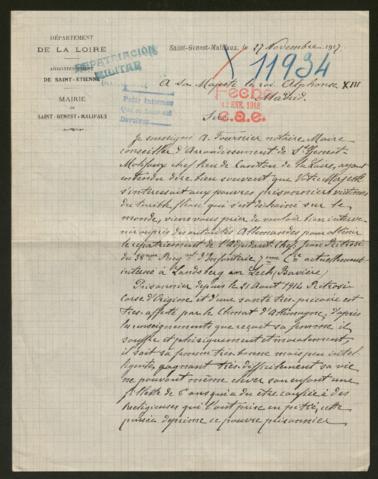 DÉPARTEMENT
DE LA LOIRE
ARRONDISSEMENT
DE SAINT-ETIENNE
MAIRIE
DE
SAINT-GENEST-MALIFAUX
REPATRIACION
MILITAR
Saint-Genest-Malifaux, le 27 Novembre 1917
X 11934
A son Majesté le roi Alphonse XIII
Madrid
Fecha
12 ENE. 1918
Sire
Je soussigné A. Fournier notaire Maire
conseiller d'Arrondissement de St Genest
Malifaux chef lieu de Canton de la Loire, ayant
entendu dire bien souvent que Votre Majesté
s'intéressait aux pauvres prisonniers victimes
du terrible fléau qui s'est déchaîné sur le
monde, viens vous prier de vouloir bien interve
nir auprès des autorités Allemandes pour obtenir
le repatriement de l'Adjudant chef
du 38eme Reg d'Infanterie 7eme Cie actuellement
interné à Landsberg am Lech (Bavière)
Prisonnier depuis le 31 Aout 1914
Corse d'Origine et d'une santé très précaire est
très affecté par le climat d'Allemagne, d'après
les renseignements que reçoit sa femme il
souffre et physiquement et moralement,
il sait sa femme très bonne mais peu intel
ligente, gagnant très difficilement sa vie
ne pouvant même élever son enfant une
fillette de 6 ans qui a du être confiée à des
Religieuses qui l'ont prise en pitié, cette
pensée déprime ce pauvre prisonnier